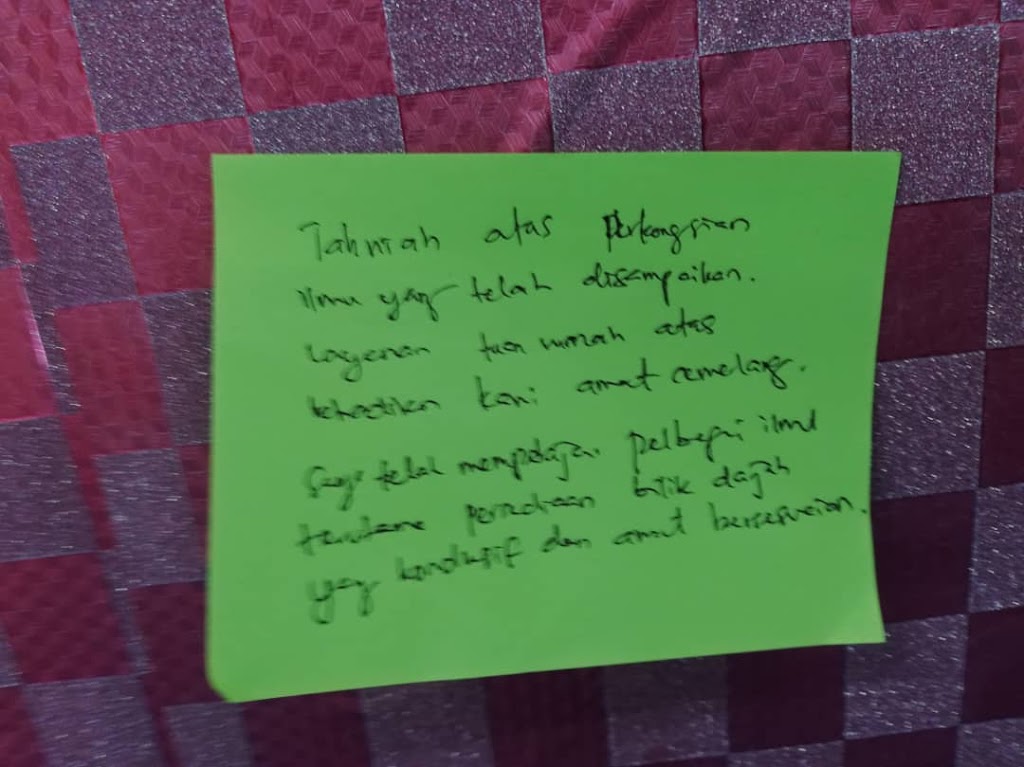 Tahniah atas perkongsian
ilmu yang telah disampaikan.
Layanan tuan rumah atas
kehadiran kami amat cemerlang.
Saya telah mempelajari pelbagai ilmu
terutama persediaan bilik darjah
yang kondusif dan amat bersesuaian.